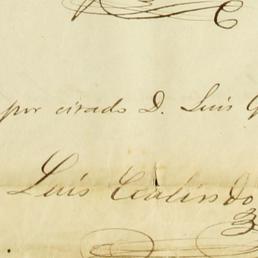 por citado D. Luis G
Luis Galindo